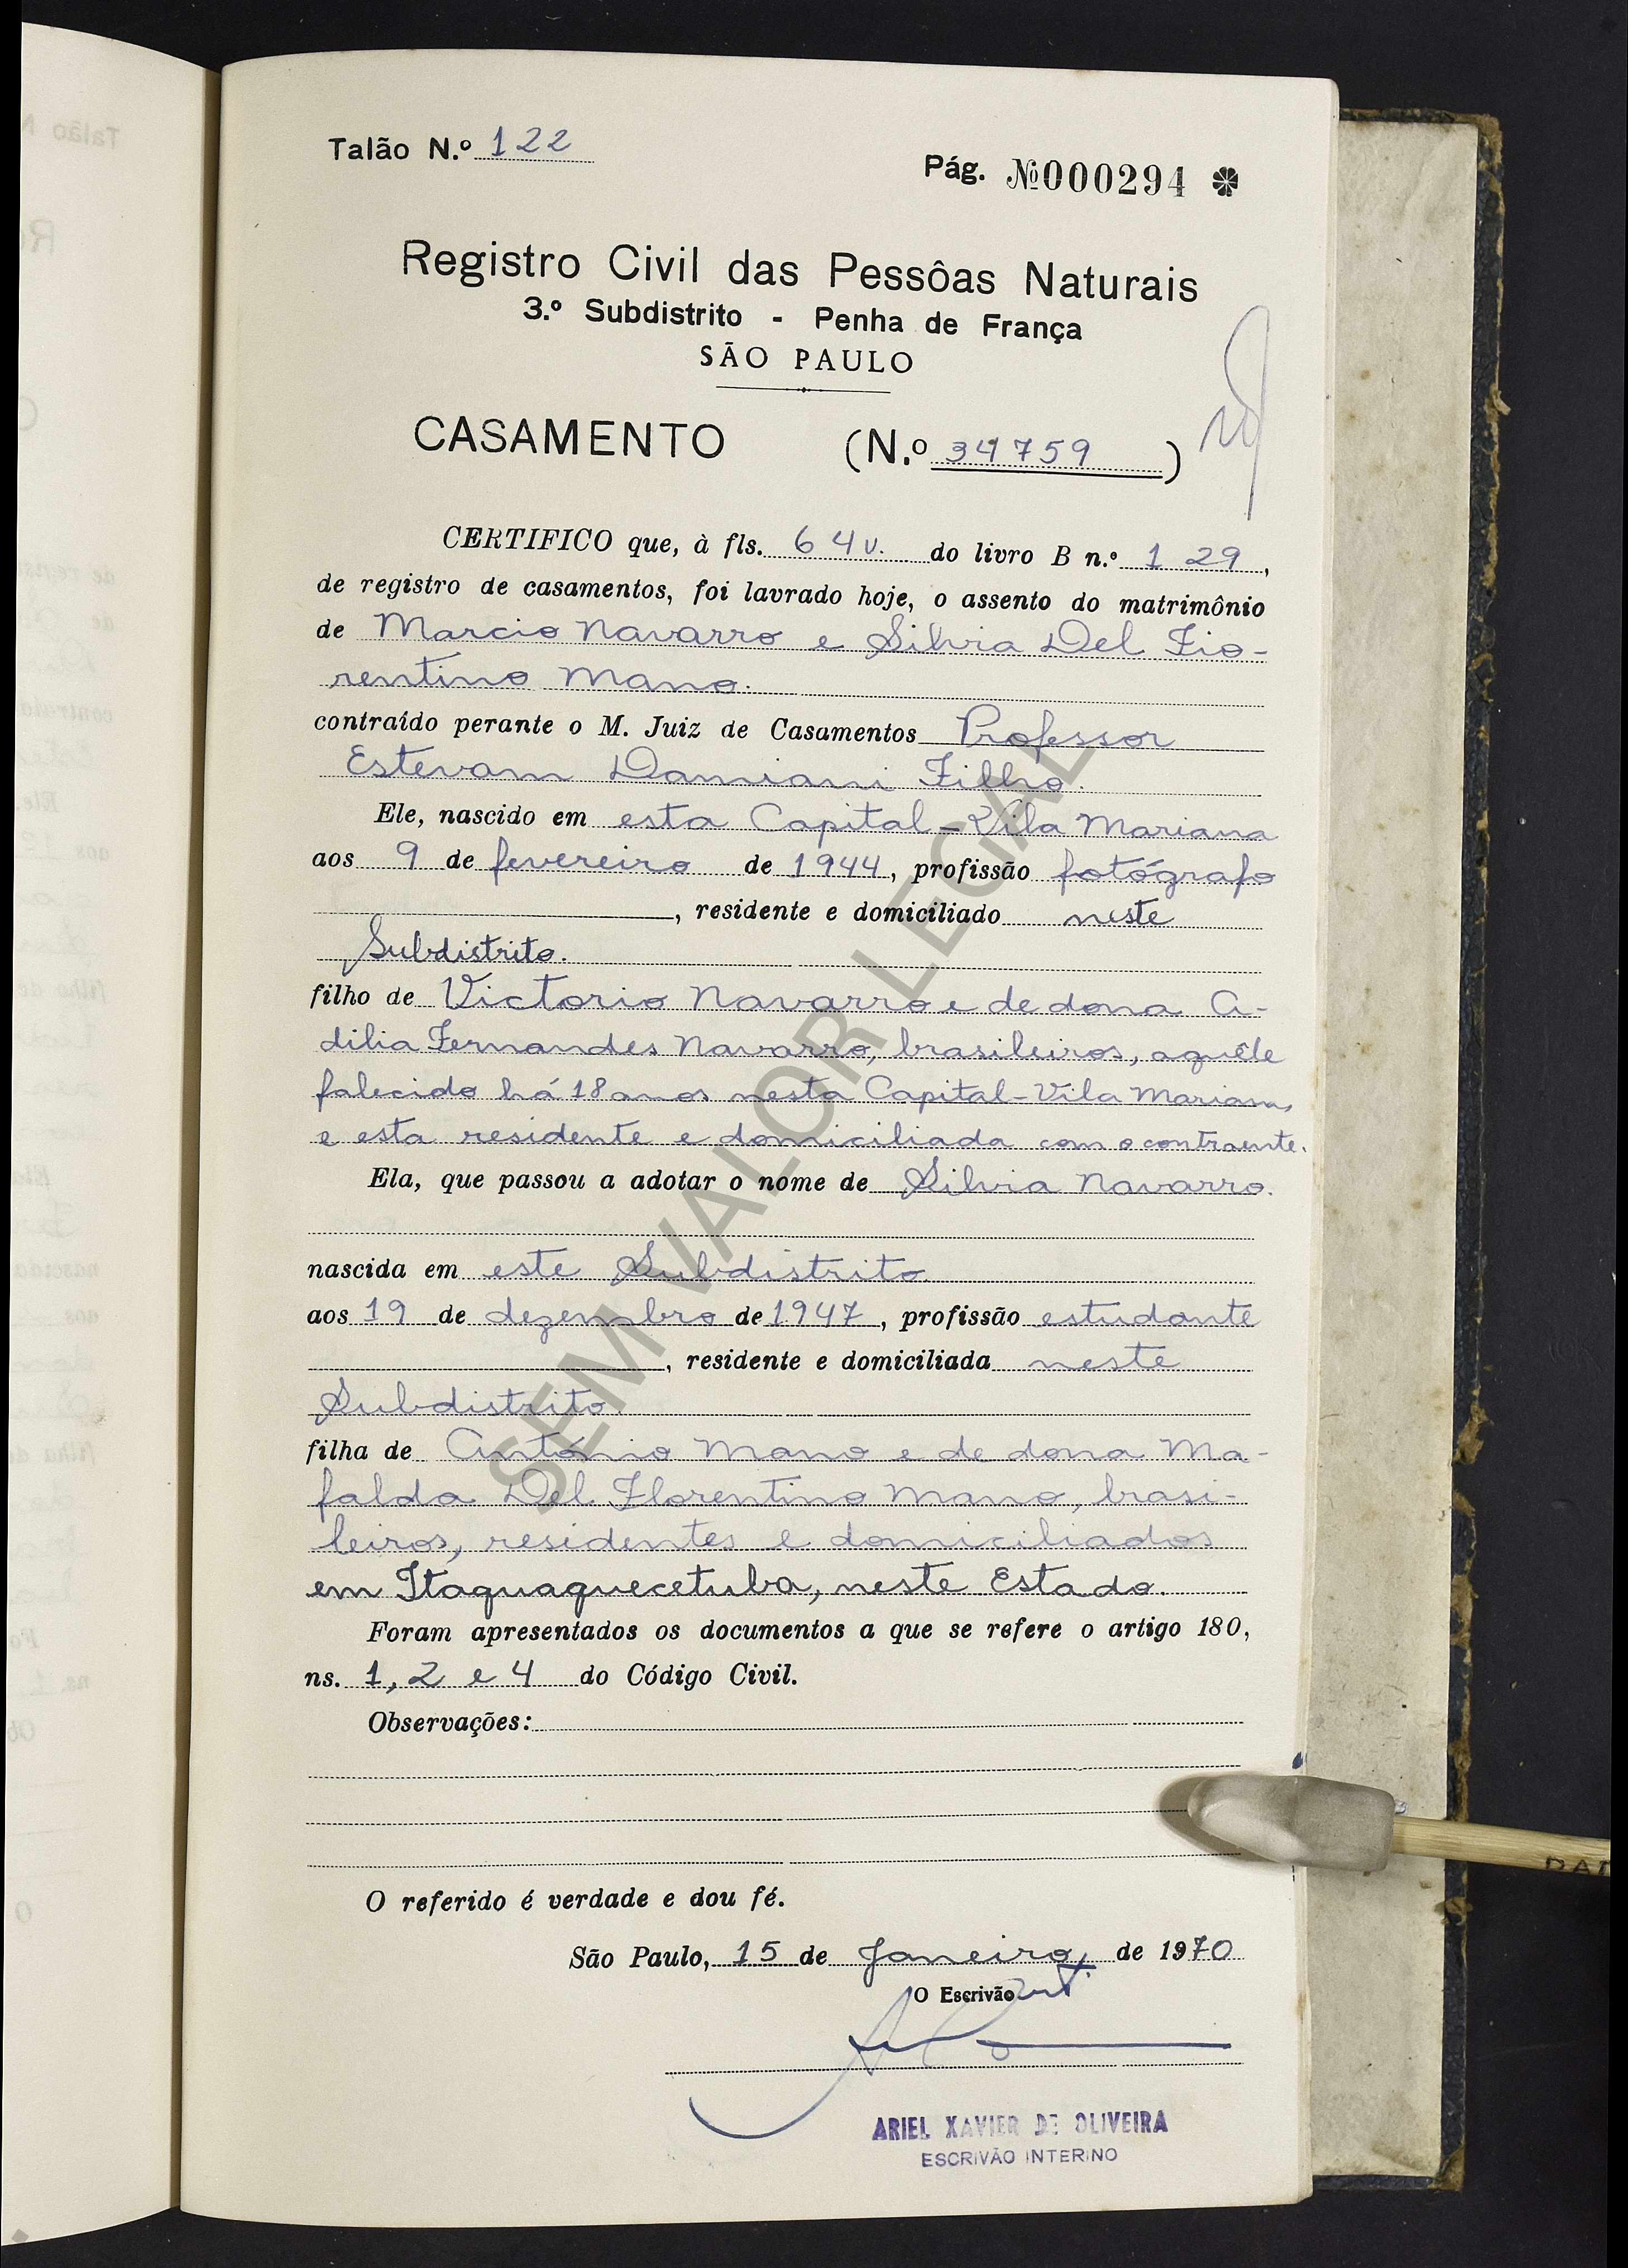 Talão N.º 122
Pág. №000294
Registro Civil das Pessôas Naturais
3.º Subdistrito - Penha de França
SÃO PAULO
CASAMENTO (N.º 34759)
CERTIFICO que, à fls. 64v. do livro B n.º 129,
de registro de casamentos, foi lavrado hoje, o assento do matrimônio
de Marcio Navarro e Silvia Del Fio-
rentino Mano.
contraído perante o M. Juiz de Casamentos Professor
Estevam Damiani Filho.
Ele, nascido em esta Capital - Vila Mariana
aos 9 de fevereiro de 1944, profissão fotógrafo
, residente e domiciliado neste
Subdistrito.
filho de Victorio Navarro e de dona A-
dilia Fernandes Navarro, brasileiros, aquêle
falecido há 18 anos nesta Capital - Vila Mariana,
e esta residente e domiciliada com o contraente.
Ela, que passou a adotar o nome de Silvia Navarro.
nascida em este Subdistrito
aos 19 de dezembro de 1947, profissão estudante
, residente e domiciliada neste
Subdistrito.
filha de António Mano e de dona Ma-
falda Del Florentino Mano, brasi-
leiros, residentes e domiciliados
em Itaquaquecetuba, neste Estado.
Foram apresentados os documentos a que se refere o artigo 180,
ns. 1, 2 e 4 do Código Civil.
Observações:
O referido é verdade e dou fé.
São Paulo, 15 de Janeiro, de 1970
O Escrivão int.
ARIEL XAVIER DE OLIVEIRA
ESCRIVÃO INTERINO
SEM VALOR LEGAL